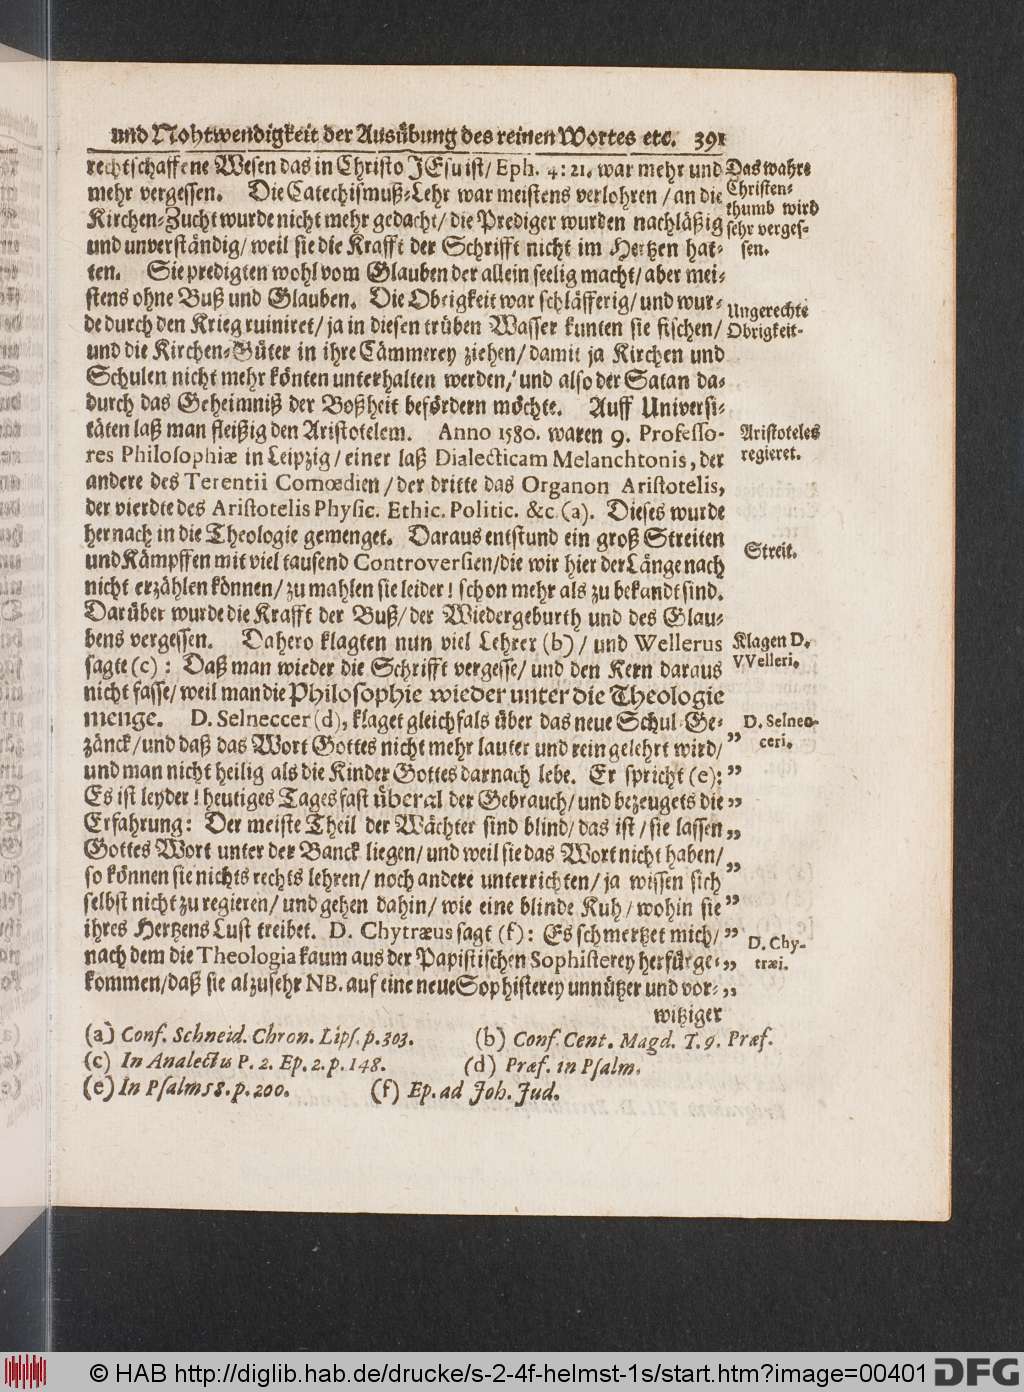 und Nohtwendigkeit der Ausübung des reinen Wortes etc. 391
rechtschaffene Wesen das in Christo JEsu ist/ Eph. 4: 21. war mehr und
mehr vergessen. Die Catechismuß-Lehr war meistens verlohren / an die
Kirchen-Zucht wurde nicht mehr gedacht/ die Prediger wurden nachläßig
und unverständig/ weil sie die Krafft der Schrifft nicht im Hertzen hat-
ten. Sie predigten wohl vom Glauben der allein seelig macht/ aber mei-
stens ohne Buß und Glauben. Die Obrigkeit war schläfferig/ und wur-
de durch den Krieg ruiniret/ ja in diesen trüben Wasser kunten sie fischen/
und die Kirchen-Güter in ihre Cämmerey ziehen/ damit ja Kirchen und
Schulen nicht mehr könten unterhalten werden/ und also der Satan da-
durch das Geheimniß der Boßheit befördern möchte. Auff Universi-
täten laß man fleißig den Aristotelem. Anno 1580. waren 9. Professo-
res Philosophiæ in Leipzig/ einer laß Dialecticam Melanchtonis, der
andere des Terentii Comœdien/ der dritte das Organon Aristotelis,
der vierdte des Aristotelis Physic. Ethic. Politic. &c (a). Dieses wurde
hernach in die Theologie gemenget. Daraus entstund ein groß Streiten
und Kämpffen mit viel tausend Controversien/die wir hier der Länge nach
nicht erzählen können/ zumahlen sie leider! schon mehr als zu bekandt sind.
Darüber wurde die Krafft der Buß/ der Wiedergeburth und des Glau-
bens vergessen. Dahero klagten nun viel Lehrer (b)/ und Wellerus
sagte (c): Daß man wieder die Schrifft vergesse/ und den Kern daraus
nicht fasse/ weil man die Philosophie wieder unter die Theologie
menge. D. Selneccer (d), klaget gleichfals über das neue Schul-Ge-
zänck/und daß das Wort Gottes nicht mehr lauter und rein gelehrt wird/ ”
und man nicht heilig als die Kinder Gottes darnach lebe. Er spricht (e): ”
Es ist leyder! heutiges Tages fast überal der Gebrauch/ und bezeugets die ”
Erfahrung: Der meiste Theil der Wächter sind blind/ das ist/ sie lassen ”
Gottes Wort unter der Banck liegen/ und weil sie das Wort nicht haben/ ”
so können sie nichts rechts lehren/ noch andere unterrichten/ ja wissen sich ”
selbst nicht zu regieren/ und gehen dahin/ wie eine blinde Kuh/ wohin sie ”
ihres Hertzens Lust treibet. D. Chytræus sagt (f): Es schmertzet mich/ ”
nach dem die Theologia kaum aus der Papistischen Sophisterey herfürge- ”
kommen/daß sie alzusehr NB. auf eine neue Sophisterey unnützer und vor- ”
witziger
Das wahre
Christen-
thumb wird
sehr verges-
sen.
Ungerechte
Obrigkeit.
Aristoteles
regieret.
Streit.
Klagen D.
VVelleri.
D. Selnec-
ceri.
D. Chy-
træi.
(a) Conf. Schneid. Chron. Lips. p. 303. (b) Conf. Cent. Magd. T. 9. Præf.
(c) In Analectis P. 2. Ep. 2. p. 148. (d) Præf. in Psalm.
(e) In Psalm 58. p. 200. (f) Ep. ad Joh. Jud.
© HAB http://diglib.hab.de/drucke/s-2-4f-helmst-1s/start.htm?image=00401 DFG